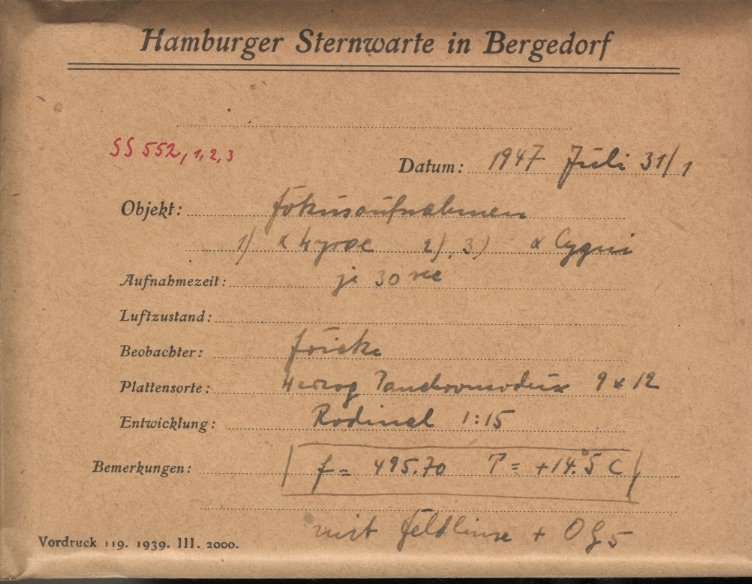 Hamburger Sternwarte in Bergedorf
SS 552, 1, 2, 3
Datum: 1947 Juli 31/1
Objekt: Fokusaufnahmen
1) α Lyrae 2), 3) α Cygni
Aufnahmezeit: je 30 sec
Luftzustand:
Beobachter: Fricke
Plattensorte: Herzog 9 x 12
Entwicklung: Rodinal 1:15
Bemerkungen: f = 495.70 T = +14.°5 C
mit Feldlinse + OG5
Vordruck 119. 1939. III. 2000.